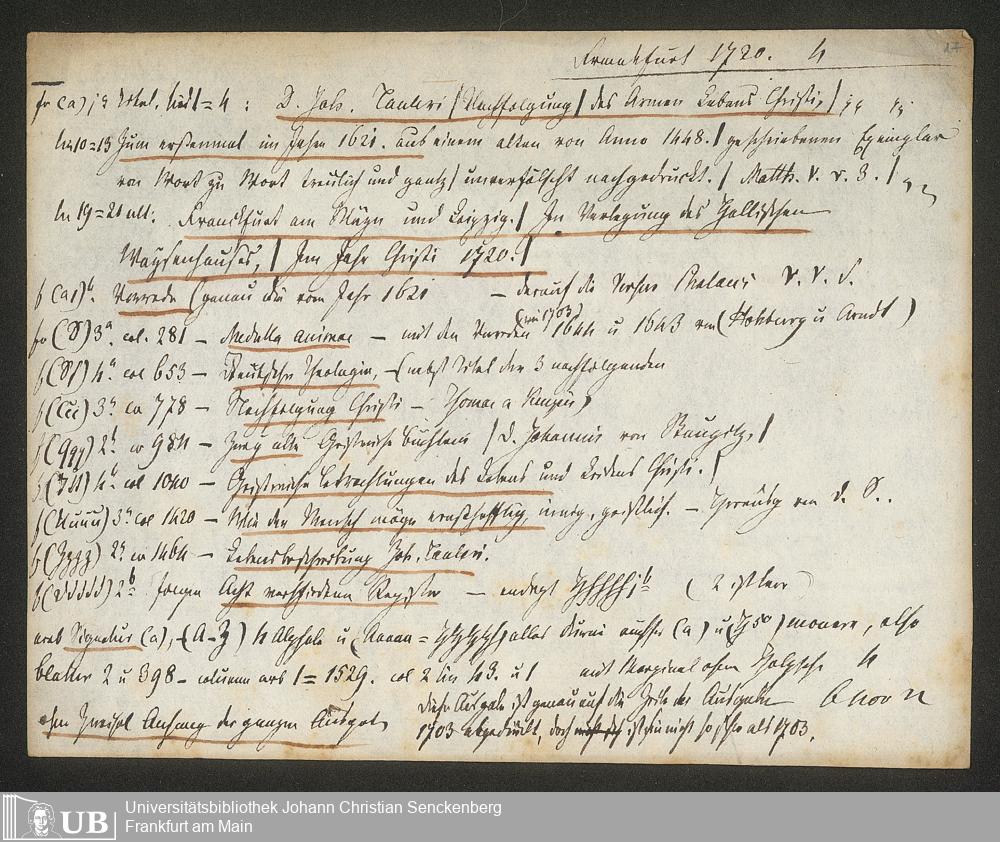 Frankfurt 1720. 4
17
fr (a) j a Titel. lied 1=4: D. Joh. Tauleri / Nachfolgung / des Armen Lebens Christi, /
lin 10=13 Zum erstenmal im Jahre 1621. aus einem alten von Anno 1448. / geschriebenen Exemplar
von Wort zu Wort treulich und gantz / unverfälscht nachgedruckt. / Matth. V. v. 3. /
lin 19=21 ult. Franckfurt am Mayn und Leipzig. / In Verlegung des Hallischen
Waysenhauses, / Im Jahr Christi 1720. /
f (a 1) b. Vorrede (genau wie vom Jahr 1621 — darauf die Verse Phaleuci V. V. S.
fr (S) 3a. col. 281 — Medulla animae — mit den Vorreden (wie 1703) 1644 u 1643 von (Hohburg u Arndt)
f (Sf) 4a col 653 — Deutsche Theologia, — (nebst Titel der 3 nachfolgenden
f (Ccc) 3a co 778 — Nachfolgung Christi — Thomae a Kempis)
f (Qqq) 2b co 984 — Zwey alte Geistreiche Büchlein / D. Johannis von Staupitz, /
f. (Ttt) 4a. col 1040 — Geistreiche Betrachtungen des Lebens und Leidens Christi. /
f (Uuuu) 3a col 1420 — Wie der Mensch möge ernsthafftig, innig, geistlich. — von D. S..
f (Zzzz) 2a co 1464 — Lebensbeschreibung Joh. Tauleri.
f (ddddd) 2b folgen Acht verschiedene Register — endigt Hhhhh j b (2 ist leer)
arab Signatur (a), (A–Z) 4 Alphab u (Aaaaa = Hhhhh) alles außer (a) u monere, also
Blätter 2 u 398 — columnen arb 1=1529. col 2 lin 43. u 1 mit Marginal ohne Holzsch 4
ohne Zweifel Anfang der ganzen Ausgab
diese Ausgabe ist genau auf die Zeile der Ausgabe
1703 abgedruckt, doch ist sie nicht so schön als 1703.
Universitätsbibliothek Johann Christian Senckenberg
Frankfurt am Main
UB